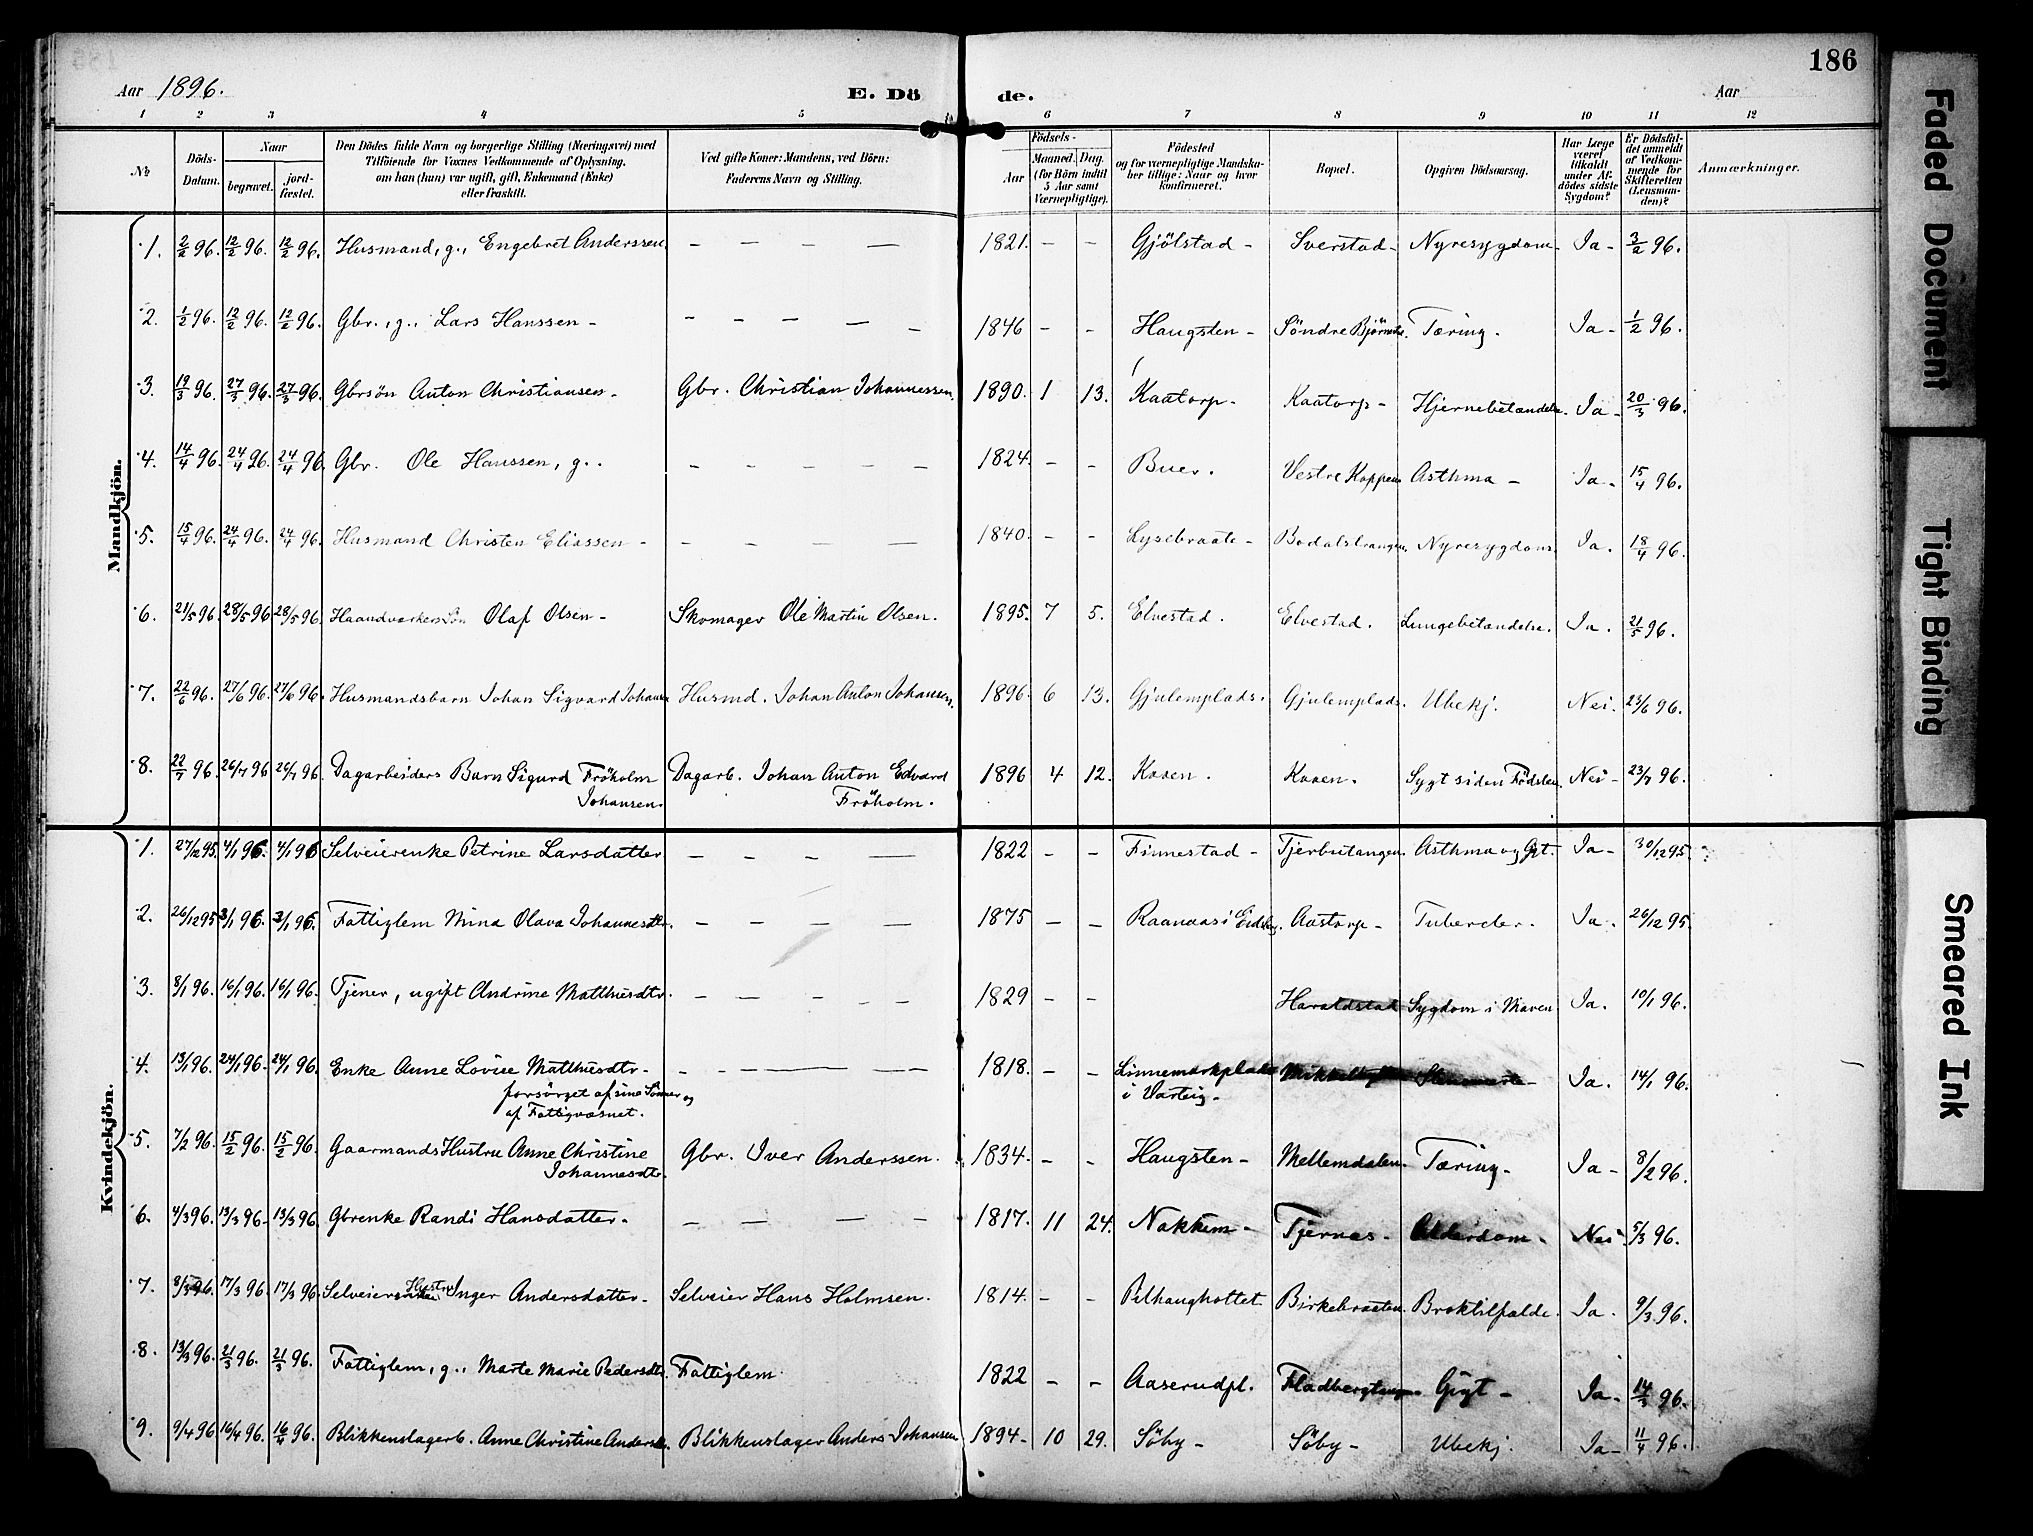 186
Aar 1896. E. Dö de. Aar
1 2 3 4 5 6 7 8 9 10 11 12
№ Döds-Datum. Naar begravet. jord-fæstet. Den Dödes fulde Navn og borgerlige Stilling (Næringsvei) med Tilföiende for Voxnes Vedkommende af Oplysning, om han (hun) var ugift, gift, Enkemand (Enke) eller fraskilt. Ved gifte Koner: Mandens, ved Börn: Faderens Navn og Stilling. Födsels- Aar Maaned. Dag. (for Börn indtil 5 Aar samt Værnepligtige). Födested og for værnepligtige Mandska-ber tillige: Naar og hvor konfirmeret. Bopæl. Opgiven Dödsaarsag. Har Læge været tilkaldt under Af-dödes sidste Sygdom? Er Dödsfal-det anmeldt af Vedkom-mende for Skifteretten (Lensman-den)? Anmærkninger.
Mandkjön.
1. 2/2 96. 12/2 96. 12/2 96. Husmand, g., Engebret Anderssen — — — — 1821. — — Gjölstad — Sverstad — Nyresygdom Ja — 3/2 96.
2. 1/2 96. 12/2 96. 12/2 96. Gbr., g., Lars Hanssen — — — — — — 1846 — — Haugsten — Söndre Tæring. Ja — 1/2 96.
3. 19/3 96. 27/3 96. 27/3 96. Gbrsön Anton Christiansen — Gbr. Christian Johannessen. 1890. 1 13. Kaatorp — Kaatorp — Hjernebetændelse. Ja — 20/3 96.
4. 14/4 96. 24/4 96. 24/4 96. Gbr. Ole Hanssen, g. — — — — — 1824. — — Buer. Vestre Koppen Asthma — Ja — 15/4 96.
5. 15/4 96. 24/4 96. 24/4 96. Husmand Christen Eliassen — — — — — 1840. — — Lysebraate — Nyresygdom. Ja. 18/4 96.
6. 21/5 96. 28/5 96 28/5 96. Haandværkers Sön Olaf Olsen — Skomager Ole Martin Olsen. 1895. 7 5. Elvestad. Elvestad. Lungebetændelse. Ja. 21/5 96.
7. 22/6 96. 27/6 96. 27/6 96. Husmandsbarn Johan Sigvard Johansen Husmd. Johan Anton Johansen. 1896. 6 13. Gjulemplads. Gjulemplads. Ubekj. Nei. 23/6 96.
8. 22/7 96. 26/7 96 26/7 96. Dagarbeiders Barn Sigurd Fröholm Dagarb. Johan Anton Edvard 1896 4 12. Kaaen. Kaaen. Sygt siden Födslen. Nei — 23/7 96.
Johansen. Fröholm.
Kvindekjön.
1. 27/12 95. 4/1 96. 4/1 96 Selveierenke Petrine Larsdatter — — — — 1822 — — Finnestad — Tjerbutangen. Asthma og Ja — 30/12 95.
2. 26/12 95 3/1 96. 3/1 96. Fattiglem Mina Olava Johannesdtr. — — — — 1875 — — Raanaas i Eidsbg. Aastorp — Tubercler. Ja. 26/12 95.
3. 8/1 96. 16/1 96. 16/1 96. Tjener, ugift Andrine Matthisdtr. — — — — — 1829 — — Haraldstad Sygdom i Maven Ja. 10/1 96.
4. 13/1 96. 24/1 96. 24/1 96. Enke Anne Lovise Matthisdtr — — — — — — 1818. — — Linnemarkplads Ja. 14/1 96.
forsörget af sine Sönner og i Varteig —
af Fattigvæsnet.
5. 7/2 96. 15/2 96. 15/2 96. Gaarmands Hustru Anne Christine Gbr. Iver Anderssen. 1834. — — Haugsten — Mellemdalen. Tæring — Ja — 8/2 96.
Johannesdtr.
6. 4/3 96. 13/3 96 — 13/3 96. Gbrenke Randi Hansdatter. — — — — 1817. 11 24. Nakkim — Tjernæs — Alderdom — Nei 5/3 96.
7. 8/3 96. 17/3 96 17/3 96 Selveier Hustru Inger Andersdatter — Selveier Hans Holmsen. 1814. — — Pilhaughottet Birkebraaten Broktilfælde. Ja. 9/3 96.
8. 13/3 96. 21/3 96. 21/3 96. Fattiglem, g., Marte Marie Pedersdtr. Fattiglem 1822 — — Aaserudpl. Gigt — Ja — 14/3 96.
9. 9/4 96 16/4 96. 16/4 96. Blikkenslagerb. Anne Christine Andersd. Blikkenslager Anders Johansen 1894 — 10 29. Söby — Söby — Ubekj. Ja — 11/4 96.
Faded Document
Tight Binding
Smeared Ink